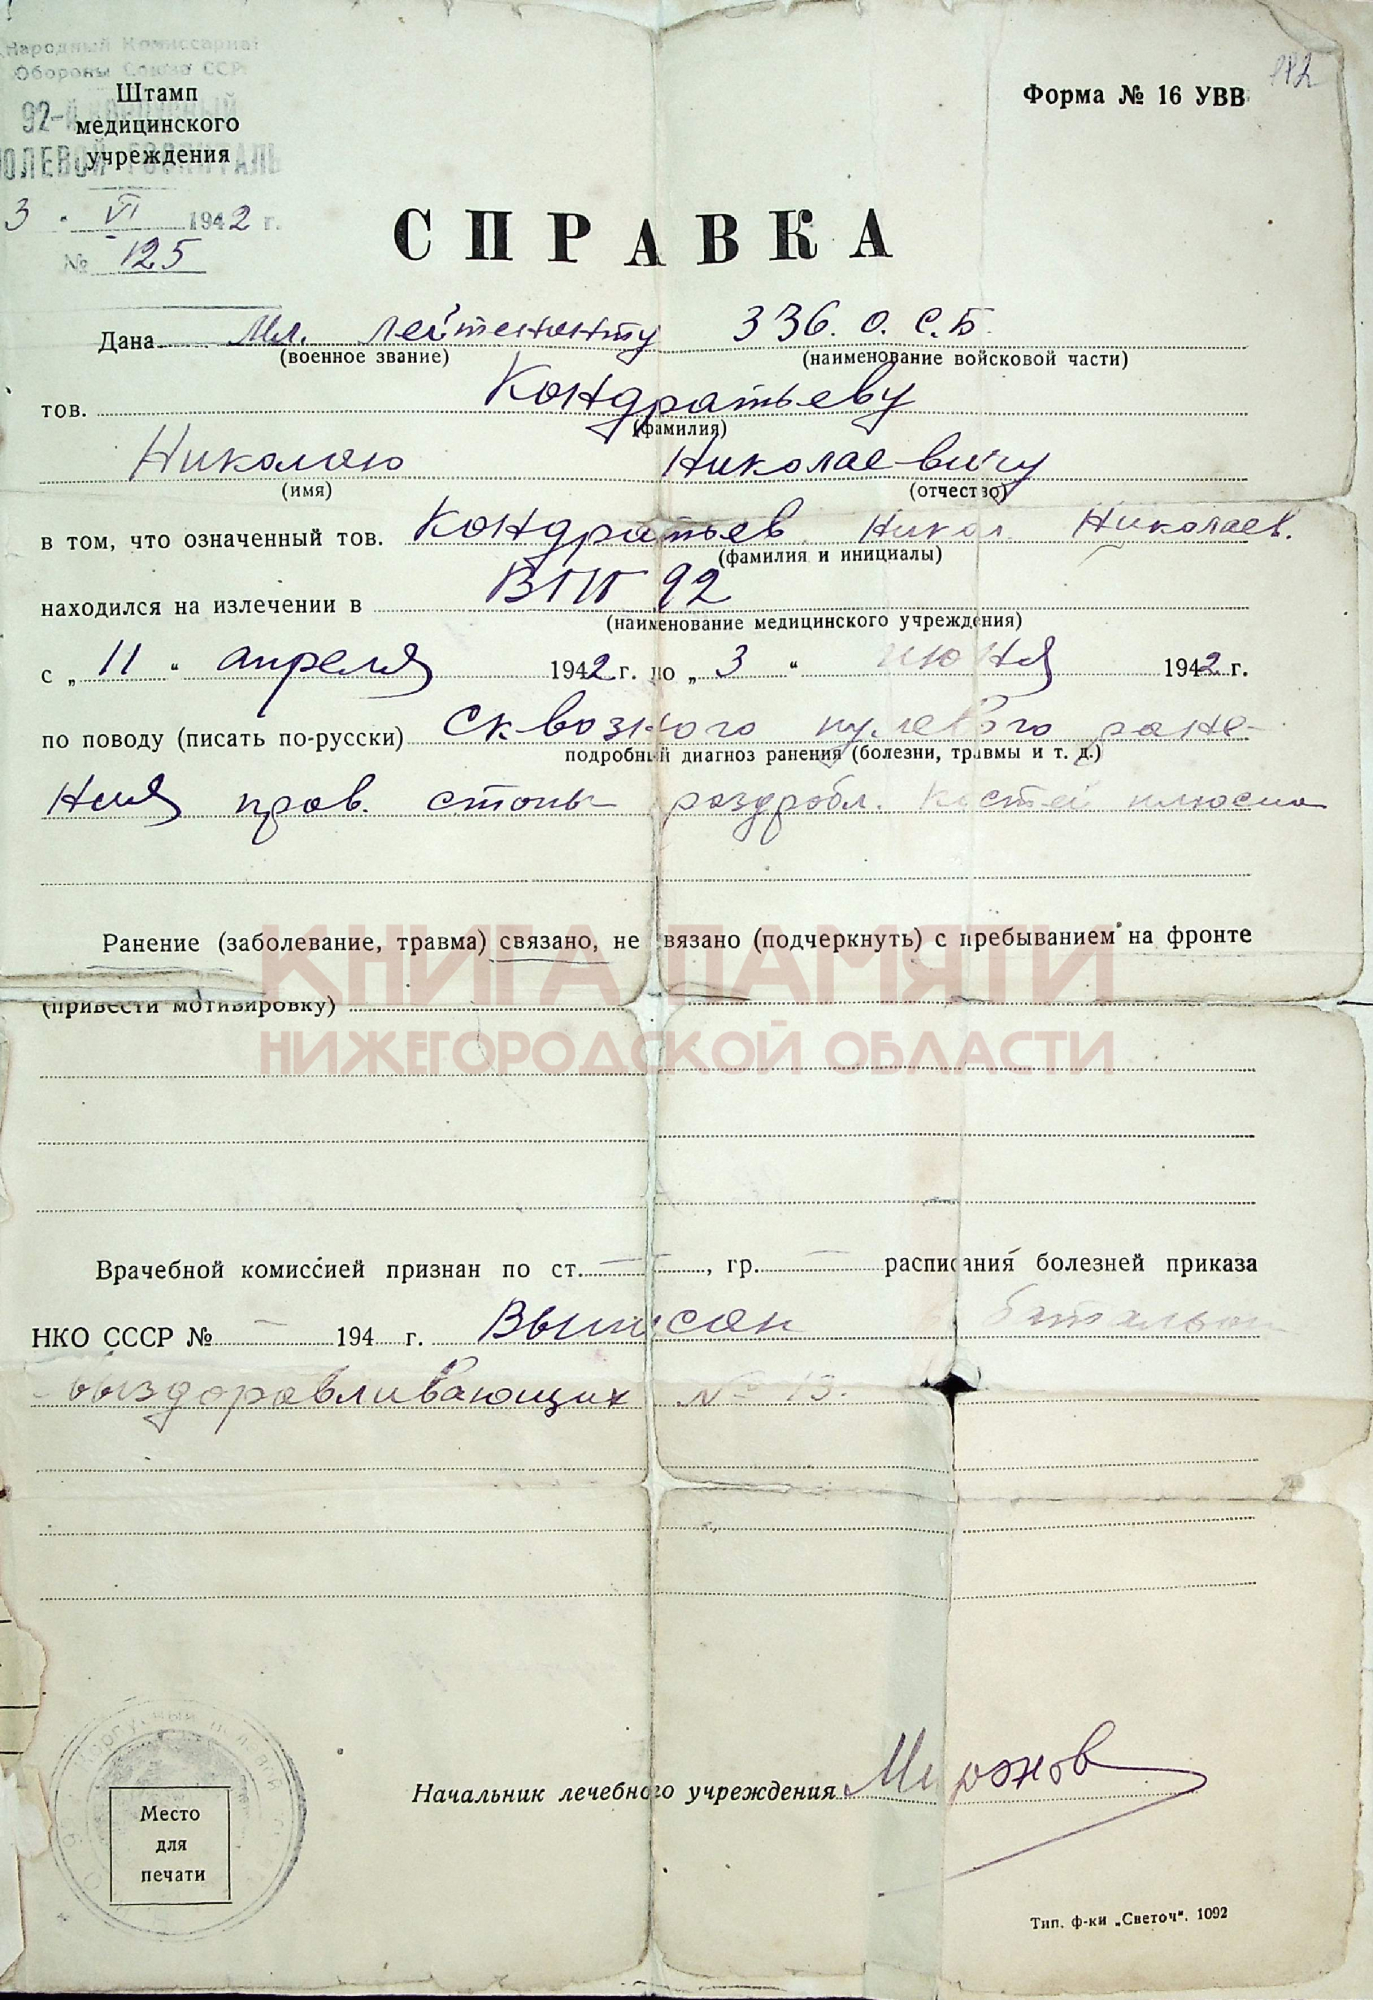 Народный Комиссариат
Обороны Союза ССР
92-й корпусный
полевой госпиталь
Штамп
медицинского
учреждения
3 VI 1942 г.
№ 125
Форма № 16 УВВ
СПРАВКА
Дана Мл. лейтенанту 336. О. С. Б.
(военное звание) (наименование войсковой части)
тов. Кондратьеву
(фамилия)
Николаю Николаевичу
(имя) (отчество)
в том, что означенный тов. Кондратьев Никол. Николаев.
(фамилия и инициалы)
находился на излечении в 92
(наименование медицинского учреждения)
с „11“ апреля 1942 г. по „3“ июня 1942 г.
по поводу (писать по-русски) Сквозного пулевого ране-
подробный диагноз ранения (болезни, травмы и т. д.)
ния прав. стопы раздробл. костей плюсны
Ранение (заболевание, травма) связано, не связано (подчеркнуть) с пребыванием на фронте
(привести мотивировку)
КНИГА ПАМЯТИ
НИЖЕГОРОДСКОЙ ОБЛАСТИ
Врачебной комиссией признан по ст. — , гр. — расписания болезней приказа
НКО СССР № — 194 г. Выписан в батальон
выздоравливающих № 19.
Начальник лечебного учреждения Миронов
Место
для
печати
Тип. ф-ки „Светоч“. 1092